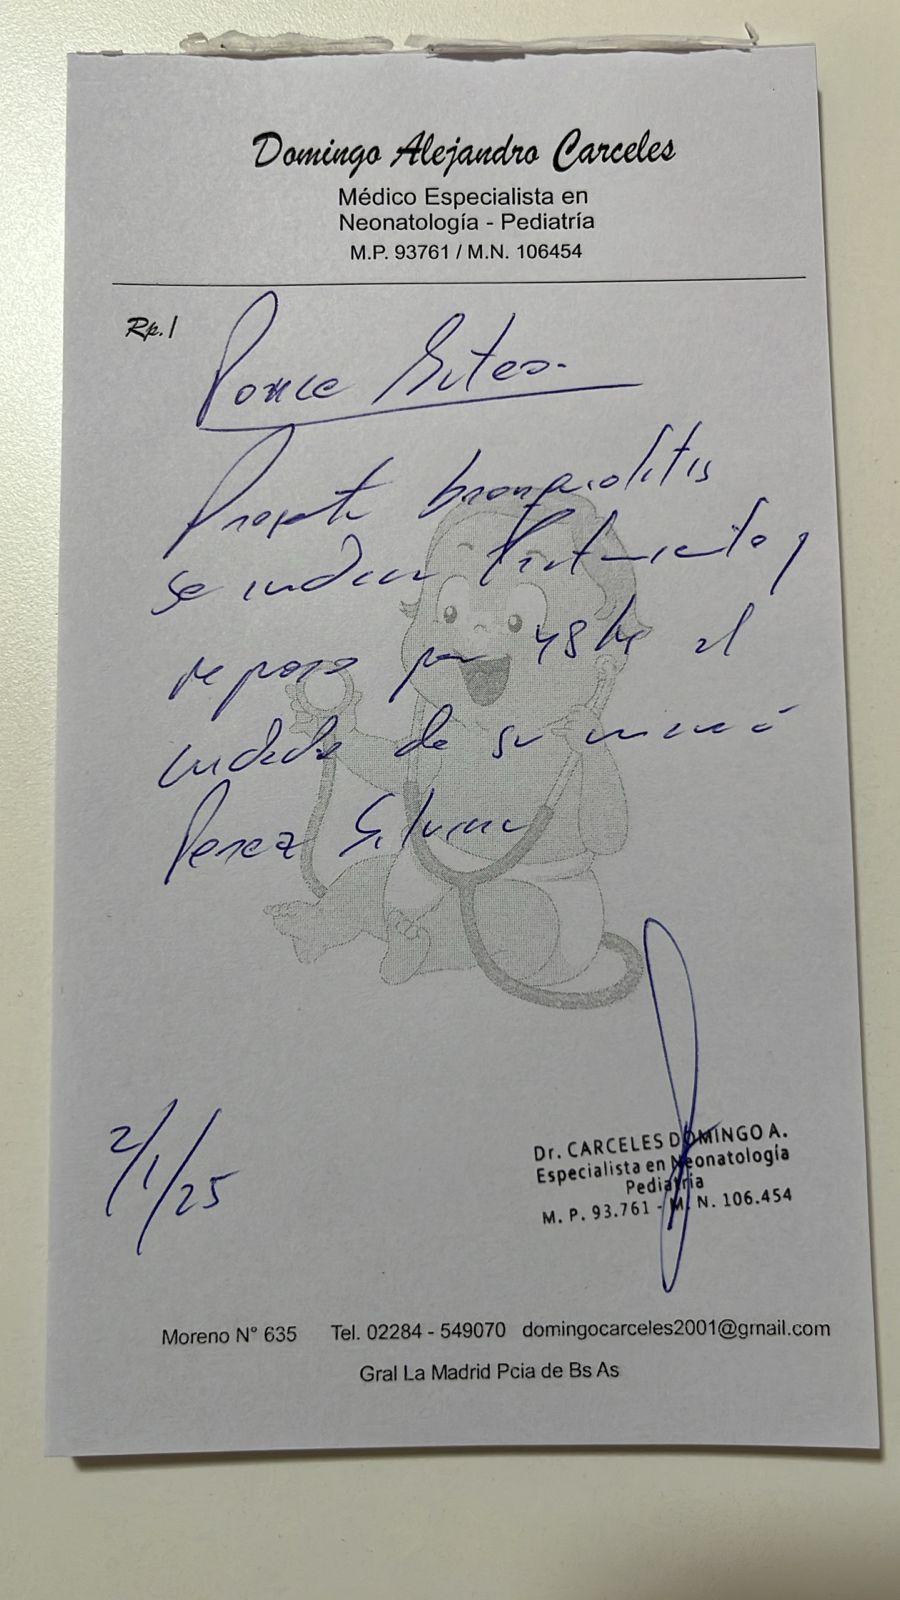 Domingo Alejandro Carceles
Médico Especialista en
Neonatología - Pediatría
M.P. 93761 / M.N. 106454
Rp./
Ponce
Presenta bronquiolitis
se indica tratamiento y
reposo por 48 hs al
cuidado de su mamá
Perez Silvina
2/1/25
Dr. CARCELES DOMINGO A.
Especialista en Neonatología
Pediatría
M. P. 93.761 - M. N. 106.454
Moreno N° 635 Tel. 02284 - 549070 domingocarceles2001@gmail.com
Gral La Madrid Pcia de Bs As